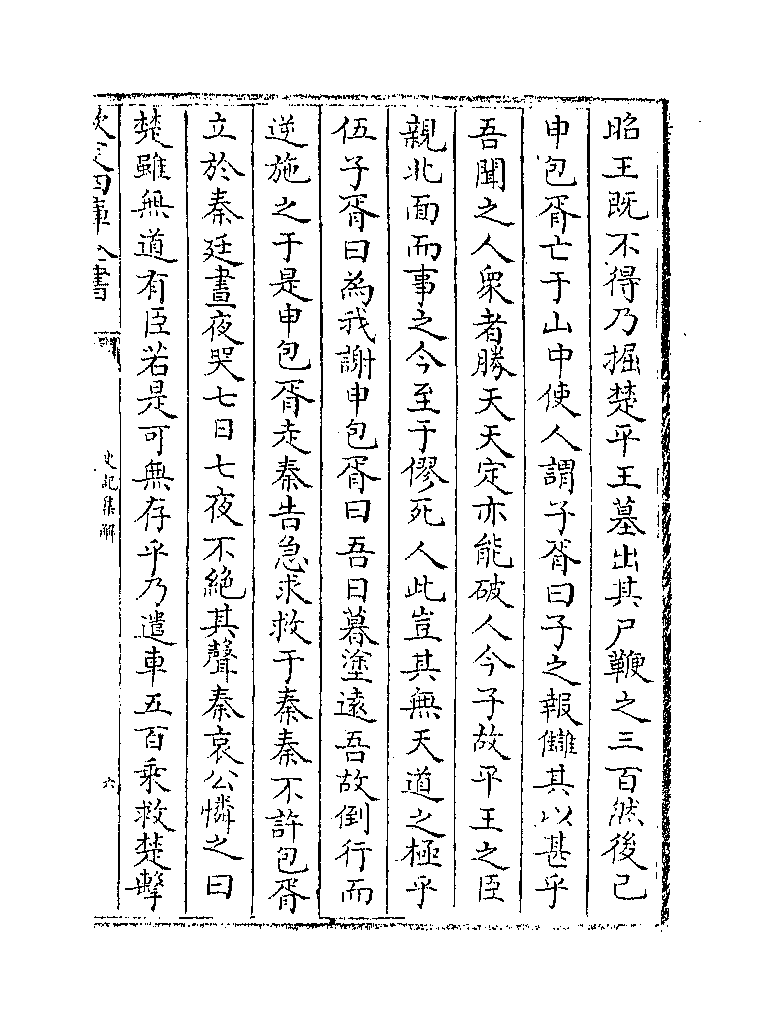 昭王既不得乃掘楚平王墓出其尸鞭之三百然後已
申包胥亡于山中使人謂子胥曰子之報讎其以甚乎
吾聞之人衆者勝天天定亦能破人今子故平王之臣
親北面而事之今至于僇死人此豈其無天道之極乎
伍子胥曰為我謝申包胥曰吾日暮塗遠吾故倒行而
逆施之于是申包胥走秦告急求救于秦秦不許包胥
立於秦廷晝夜哭七日七夜不絶其聲秦哀公憐之曰
楚雖無道有臣若是可無存乎乃遣車五百乘救楚擊
欽定四庫全書
史記集解
六